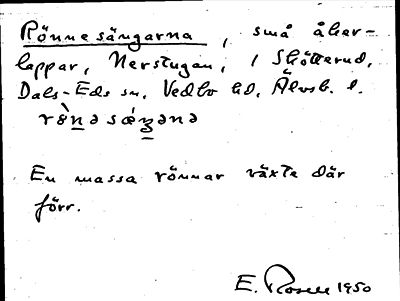 Rönnesängarna, små åker-
lappar, Nerstugan, i Skötterud,
Dals-Eds sn. Vedbo hd. Älvsb. l.
En massa rönnar växte där
förr.
E. Rosell 1950